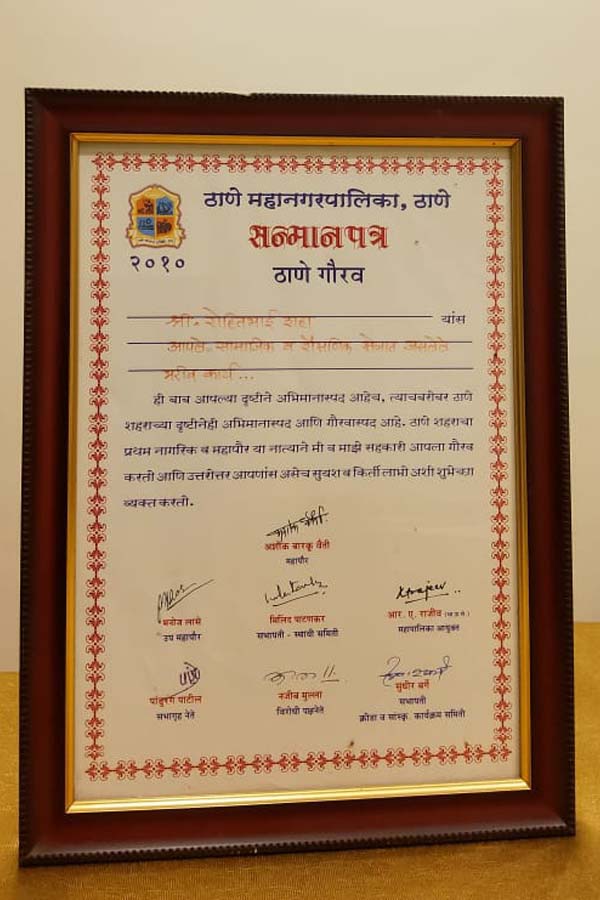 ठाणे महानगरपालिका, ठाणे
सन्मानपत्र
२०१०
ठाणे गौरव
श्री. रोहितभाई शहा यांस
आपले सामाजिक व शैक्षणिक क्षेत्रात असलेले
भरीव कार्य...
ही बाब आपल्या दृष्टीने अभिमानास्पद आहेच, त्याचबरोबर ठाणे
शहराच्या दृष्टीनेही अभिमानास्पद आणि गौरवास्पद आहे. ठाणे शहराचा
प्रथम नागरिक व महापौर या नात्याने मी व माझे सहकारी आपला गौरव
करतो आणि उत्तरोत्तर आपणांस असेच सुयश व किर्ती लाभो अशी शुभेच्छा
व्यक्त करतो.
अशोक बारकू वैती
महापौर
मनोज लासे
उप महापौर
मिलिंद पाटणकर
सभापती - स्थायी समिती
आर. ए. राजीव (भा.प्र.से.)
महापालिका आयुक्त
पांडुरंग पाटील
सभागृह नेते
नजीब मुल्ला
विरोधी पक्षनेते
सुधीर बर्गे
सभापती
क्रीडा व सांस्कृ. कार्यक्रम समिती